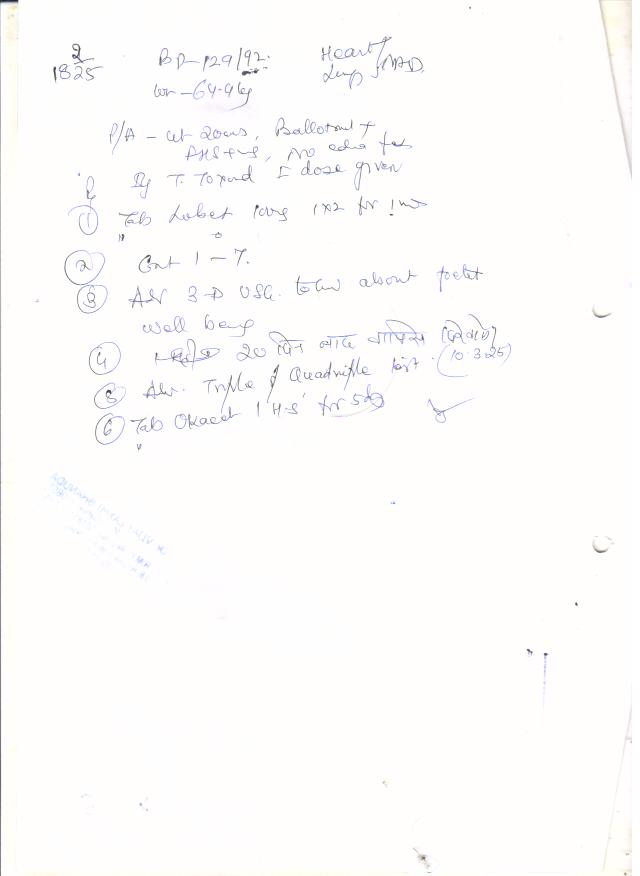 18/2/25
BP - 129/92. Heart/
Lung } NAD.
wt - 64.4 kg
P/A - ut 20 wks, Ballotment +
FHS +, No
Rx Inj T. Toxoid I dose given
① Tab Labet 100mg 1x2 for 1 m
② Cont 1 - 7.
③ Adv 3-D USG. to know about foetal
well being
④ 20 दिन बाद वापिस (10.3.25)
⑤ Adv. Triple / Quadriple test.
⑥ Tab Okacet 1 H-S for 5 d